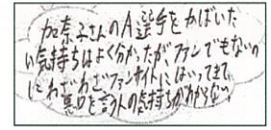 加奈子さんのA選手をかばいた
い気持ちはよく分かったが、ファンでもないの
にわざわざファンサイトにはいってきて
悪口を言う人の気持ちがわからない。